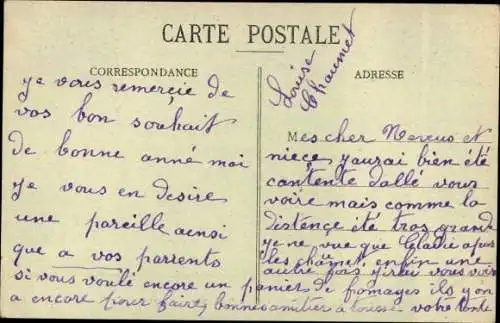 CARTE POSTALE
CORRESPONDANCE
ADRESSE
Louise
Chaumet
Je vous remerçie de
vos bon souhait
de bonne anné moi
Je vous en desire
une pareille ainsi
que a vos parrents
si vous voulé encore un panier de fromages ils y on
a encore pour faire, bonnes amitier a tousse votre tente
Mes cher Neveus et
niece yaurai bien été
cantente dallé vous
voire mais comme la
distence été tros grande
je ne vue que apus
les enfin une
autre fois j'irai vous voir